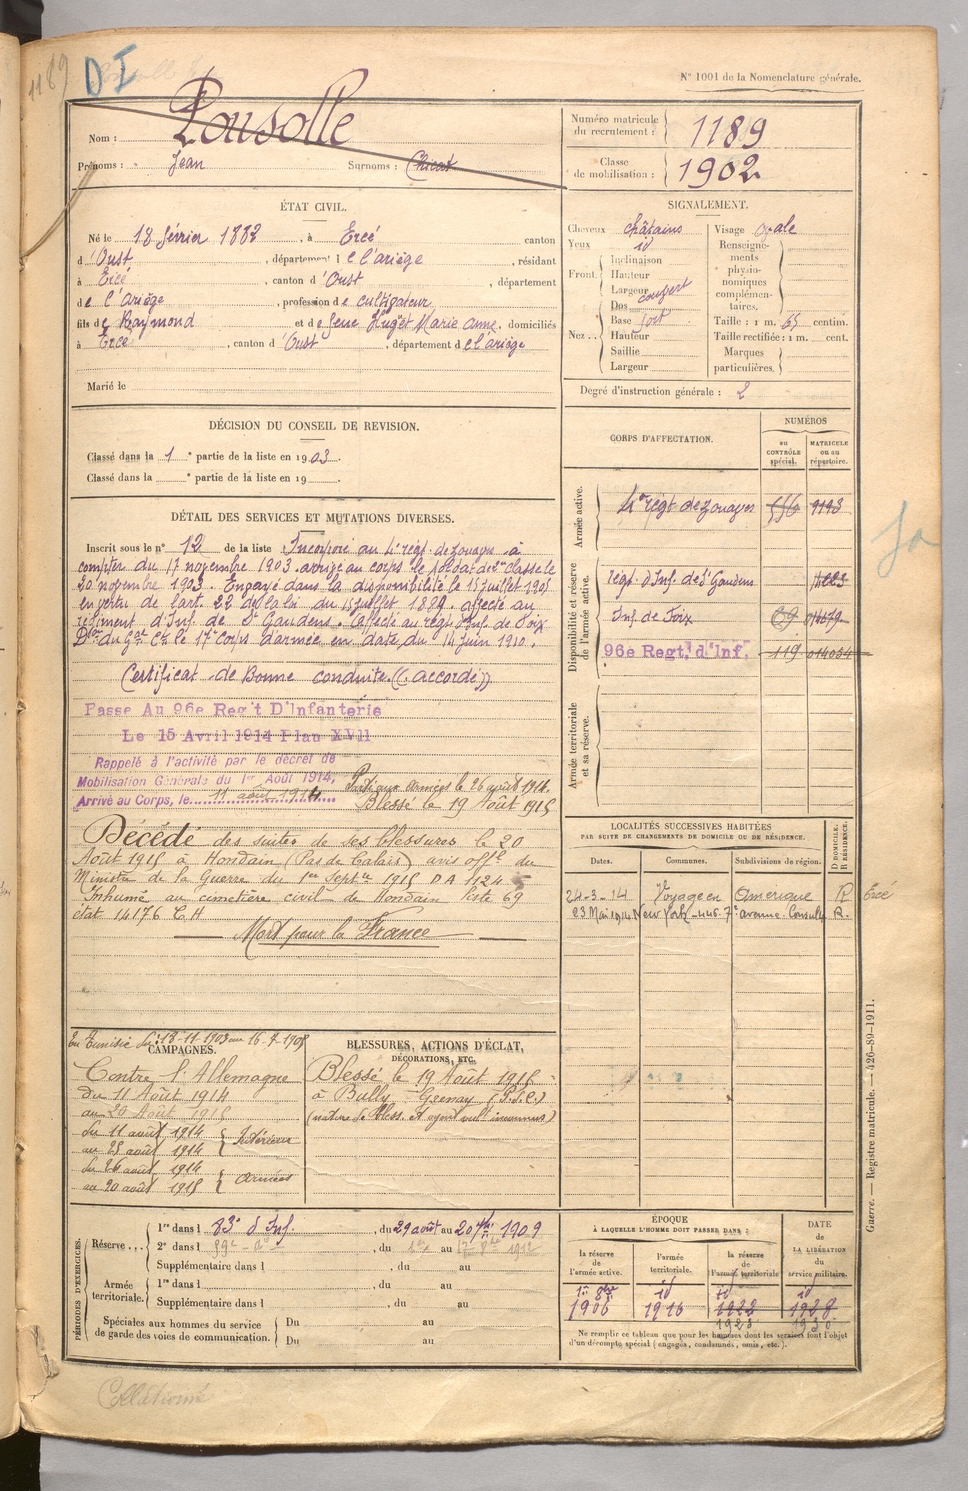 1189
D I
N° 1001 de la Nomenclature générale.
Nom : Pousolle
Prénoms : Jean Surnoms :
Numéro matricule du recrutement : 1189
Classe de mobilisation : 1902
ÉTAT CIVIL.
Né le 18 février 1882, à Ercé canton
d'Oust, département de l'Ariège, résidant
à Ercé, canton d'Oust, département
de l'Ariège, profession de cultivateur
fils de Raymond et de feue Huget Marie Anne, domiciliés
à Ercé, canton d'Oust, département de l'ariège
Marié le
SIGNALEMENT.
Cheveux châtains
Yeux id
Front Inclinaison
Hauteur
Largeur
Nez Dos
Base fort
Hauteur
Saillie
Largeur
Visage ovale
Renseignements physionomiques complémentaires.
Taille : 1 m. 65 centim.
Taille rectifiée : 1 m. cent.
Marques particulières.
Degré d'instruction générale : 2
DÉCISION DU CONSEIL DE REVISION.
Classé dans la 1e partie de la liste en 1903.
Classé dans la e partie de la liste en 19
DÉTAIL DES SERVICES ET MUTATIONS DIVERSES.
Inscrit sous le n° 12 de la liste Incorporé au 4e régt de zouaves à
compter du 17 novembre 1903. arrivé au corps le soldat de 2e classe le
20 novembre 1903. Engagé dans la disponibilité le 15 juillet 1905
en vertu de l'art. 22 de la loi du 15 juillet 1889. affecté au
régiment d'Inf. de St Gaudens. affecté au régt d'Inf. de Foix
Don du Gal Ct le 17e Corps d'armée en date du 14 juin 1910.
Certificat de Bonne conduite (accordé)
Passe Au 96e Reg't D'Infanterie
Le 15 Avril 1914 Plan XVII
Rappelé à l'activité par le décret de
Mobilisation Générale du 1er Août 1914,
Arrivé au Corps, le 11 août 1914
Parti aux armées le 26 août 1914.
Blessé le 19 Août 1915
Décédé des suites de ses blessures le 20
Août 1915 à Hondain (Pas de Calais) avis offel du
Ministre de la Guerre du 1er Septre 1915 DA 1124
Inhumé au cimetière civil de Hondain liste 69
état 14176 C.H
Mort pour la France
CORPS D'AFFECTATION.
NUMÉROS
au CONTRÔLE spécial.
MATRICULE ou au répertoire.
Armée active.
4e régt de zouaves 9193
Disponibilité et réserve de l'armée active.
régt d'Inf. de St Gaudens
Inf. de Foix
96e Regt. d'Inf. 119 014034
Armée territoriale et sa réserve.
LOCALITÉS SUCCESSIVES HABITÉES
PAR SUITE DE CHANGEMENTS DE DOMICILE OU DE RÉSIDENCE.
Dates. Communes. Subdivisions de région. D DOMICILE. R RÉSIDENCE.
24-3-14 Voyage en Amérique R Ercé
23 Mai 1914 New York 446-7e avenue R.
En Tunisie du 18-11-1903 au 16-7-1905
CAMPAGNES.
Contre l'Allemagne
du 11 Août 1914
au 20 Août 1915
du 11 août 1914
au 25 août 1914 Intérieur
du 26 août 1914
au 20 août 1915 armées
BLESSURES, ACTIONS D'ÉCLAT,
DÉCORATIONS, ETC.
Blessé le 19 Août 1915
à Bully-Grenay (P.d.C.)
(nature de bless. et agent vuln. inconnus)
Guerre. — Registre matricule. — 426-89-1911.
PÉRIODES D'EXERCICES.
Réserve 1re dans l 83e d'Inf., du 29 août au 20 7bre 1909
2e dans l 59e, du au 1912
Supplémentaire dans l, du au
Armée territoriale. 1re dans l, du au
Supplémentaire dans l, du au
Spéciales aux hommes du service de garde des voies de communication. Du au
Du au
ÉPOQUE
À LAQUELLE L'HOMME DOIT PASSER DANS :
la réserve de l'armée active.
l'armée territoriale.
la réserve de l'armée territoriale
DATE de LA LIBÉRATION du service militaire.
1er 8bre id id id
1906 1916 1922 1928
Ne remplir ce tableau que pour les hommes dont les services font l'objet
d'un décompte spécial (engagés, condamnés, omis, etc.).
Collationné